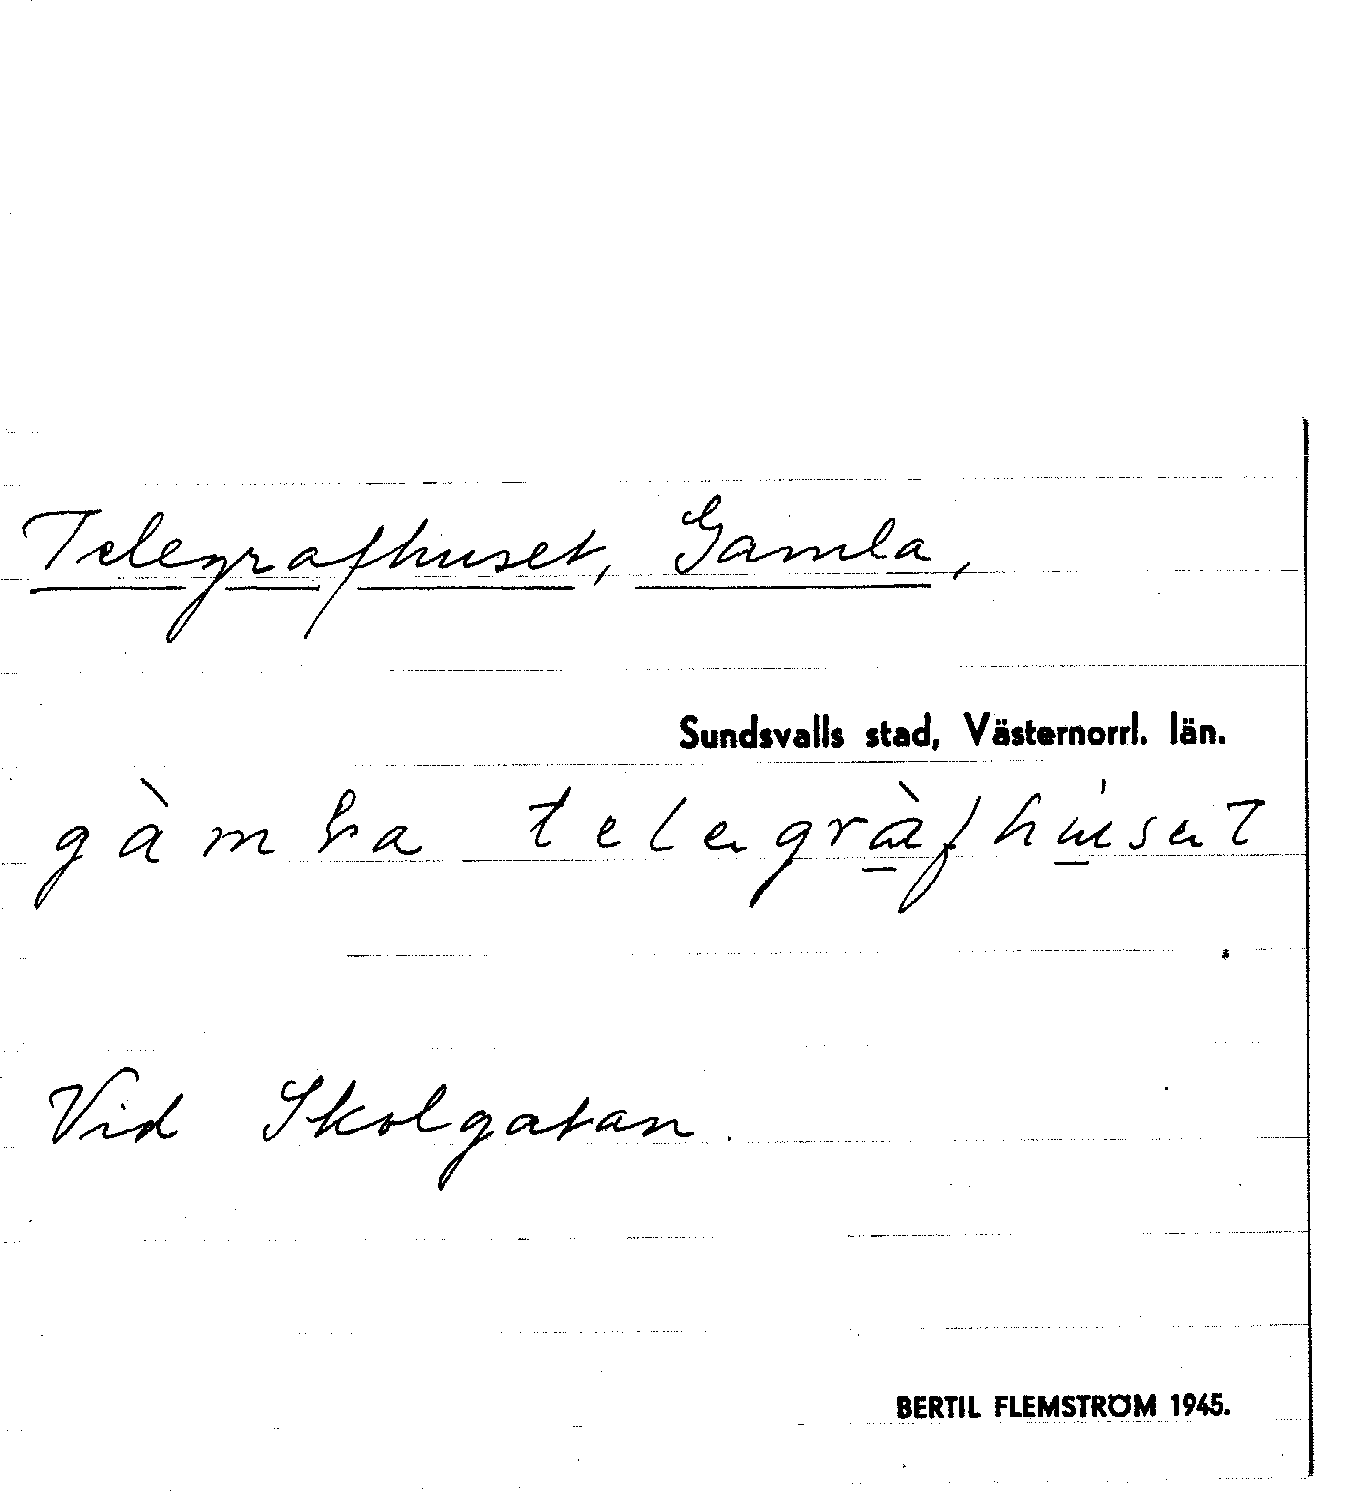 Telegrafhuset, Gamla,
Sundsvalls stad, Västernorrl. län.
Vid Skolgatan.
BERTIL FLEMSTRÖM 1945.